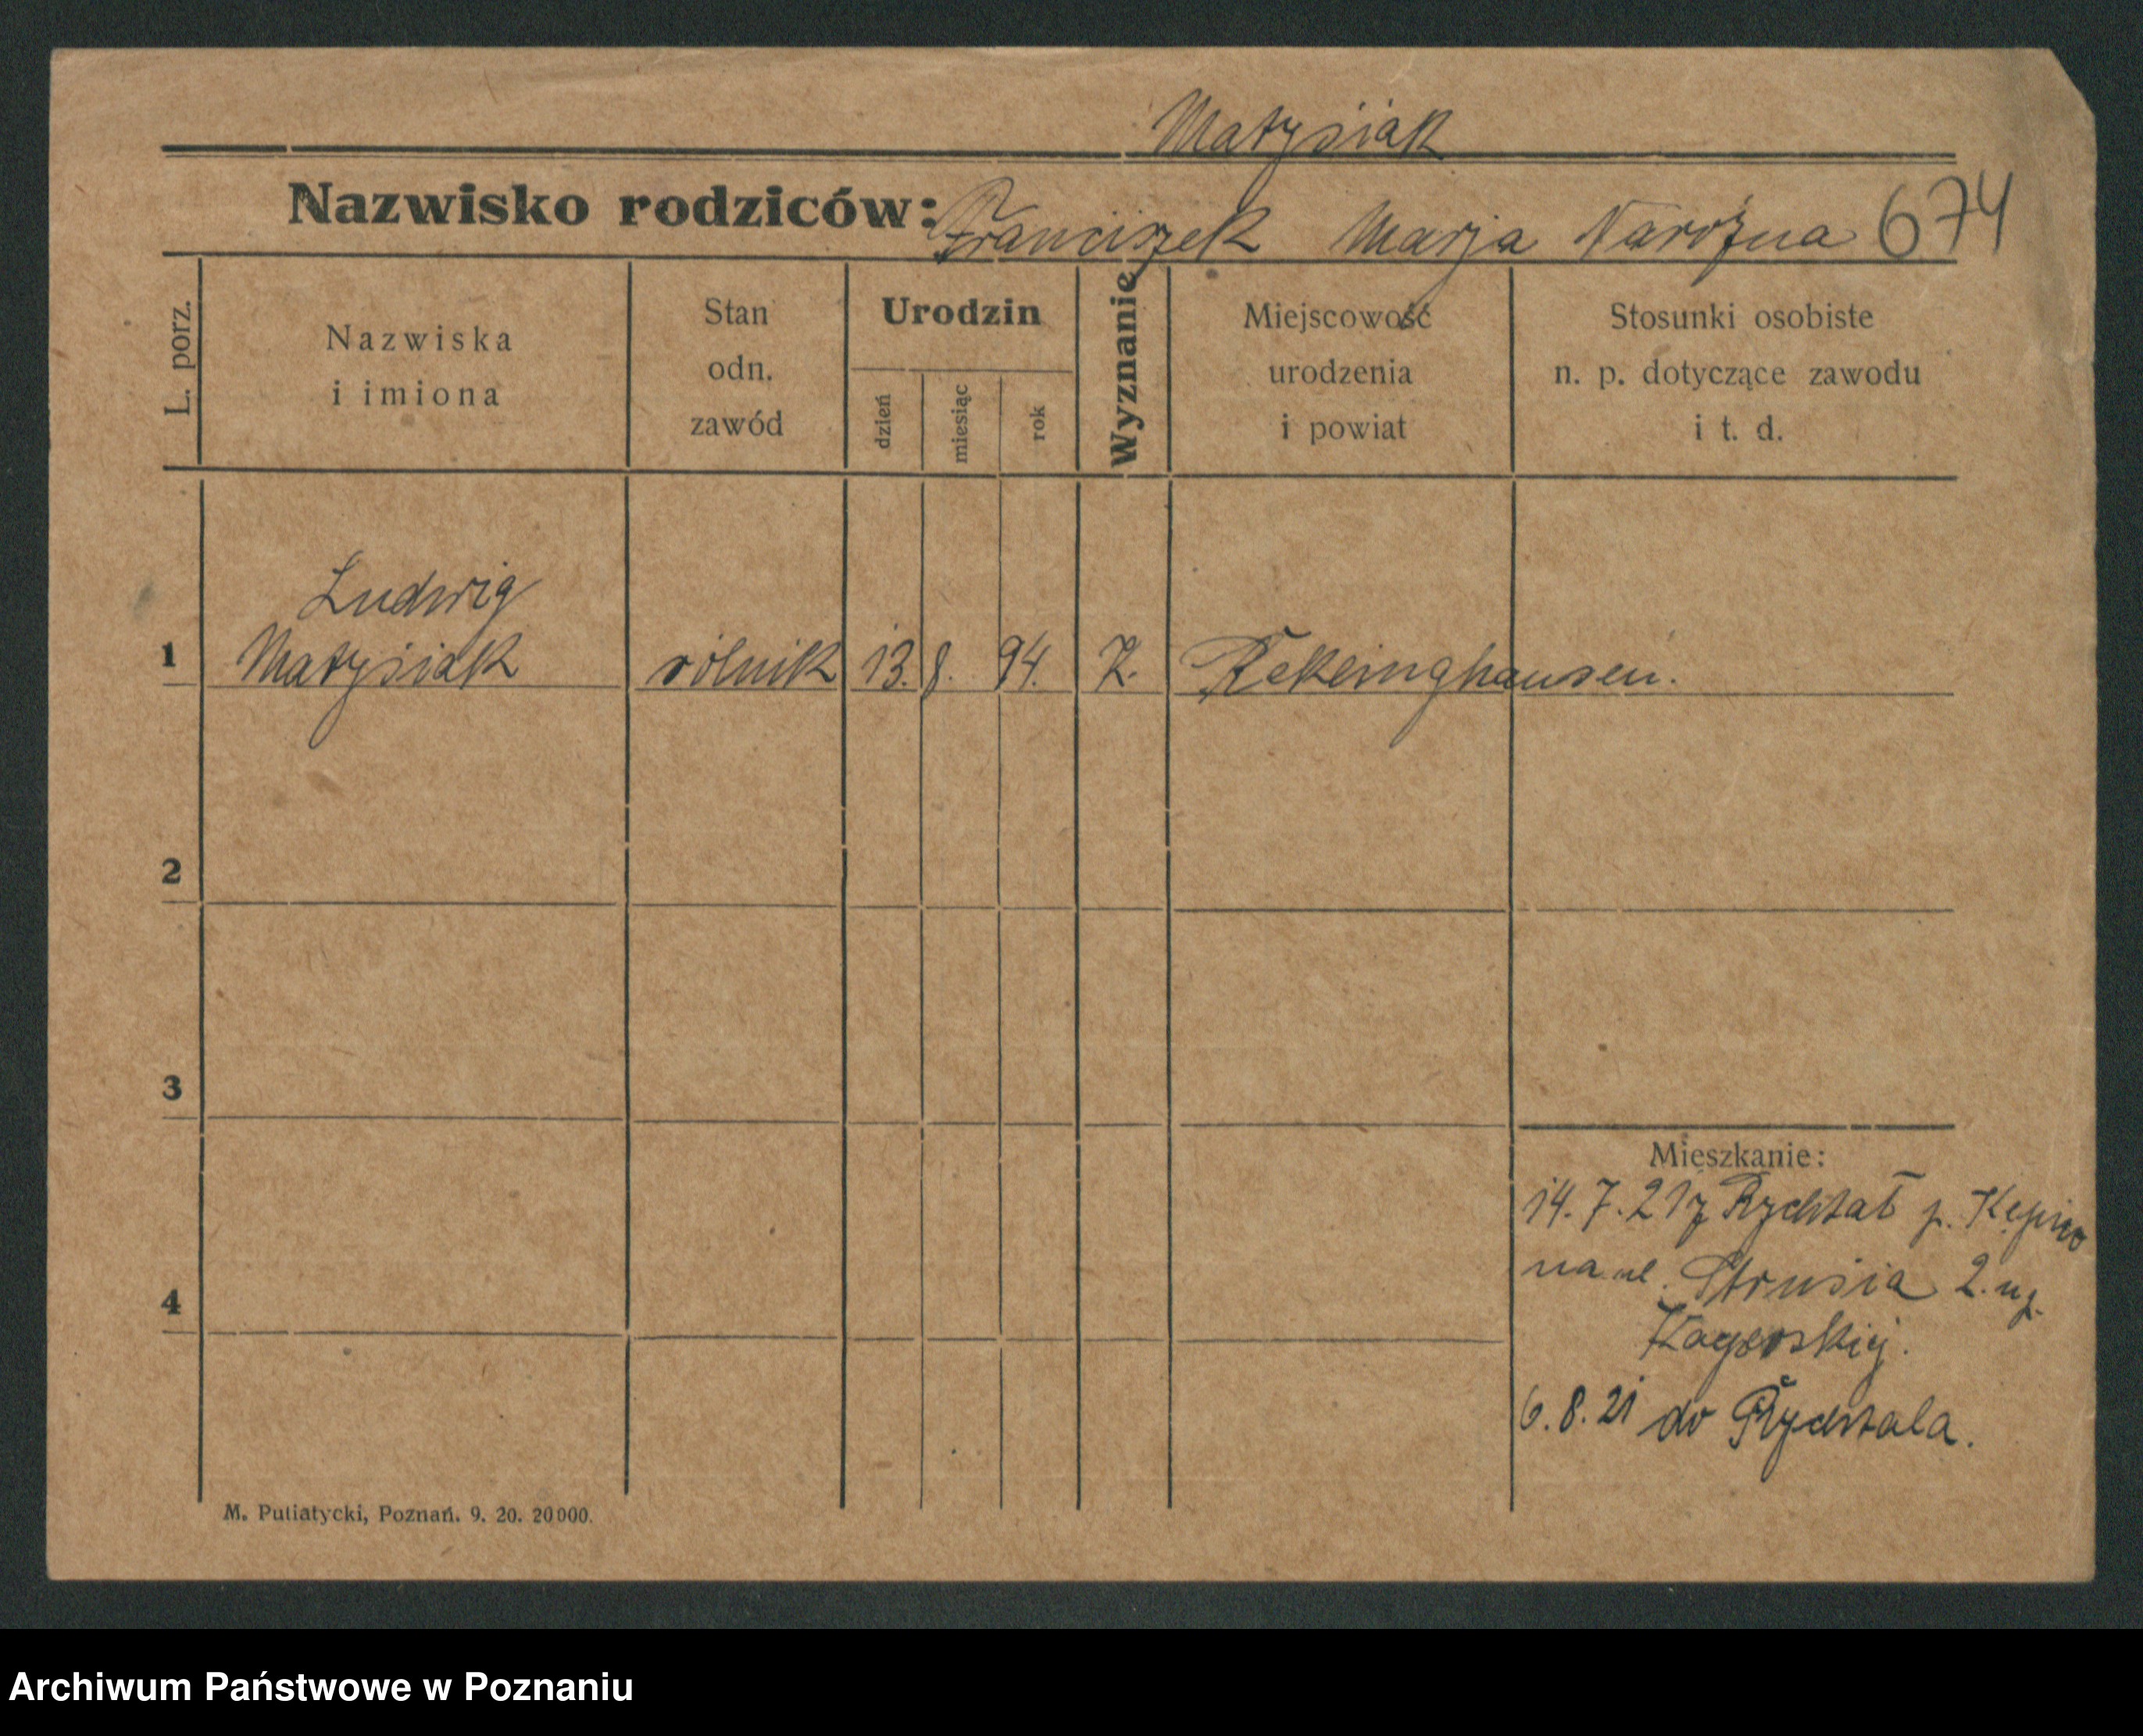 Matysiak
Nazwisko rodziców: Franciszek Marja Narożna 674
L. porz.
Nazwiska
i imiona
Stan
odn.
zawód
Urodzin
dzień
miesiąc
rok
Wyznanie
Miejscowość
urodzenia
i powiat
Stosunki osobiste
n. p. dotyczące zawodu
i t. d.
Ludwig
1 Matysiak rólnik 13. 8. 94. K. Rekeinghausen.
2
3
4
Mieszkanie:
14. 7. 21 z Rychtal p. Kępno
na ul. Strusia 2. u
6. 8. 21 do Rychtala.
M. Putiatycki, Poznań. 9. 20. 20000.
Archiwum Państwowe w Poznaniu